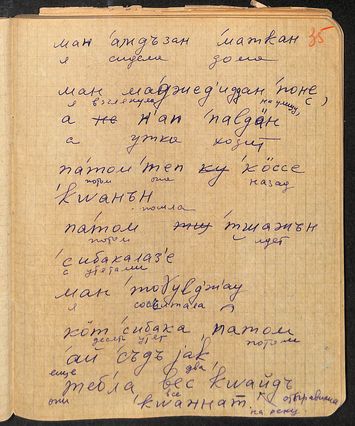 35
ман 'аждъзан 'маткан
я сидела дома
ман ма́джед'идан 'поне
я взглянула на улицу,
а не н'ап 'павдӓн
а утка ходит
па́том 'теп ку 'кӧссе
потом она назад
'кwанън
пошла
па́том 'тшажън
потом идёт
'сибакалаз'е
с утятами
ман 'тоғувджау
я сосчитала
кӧ̄т 'сибака, па́том
десять утят потом
ай съдъ jак
еще два
теб'ла вес 'кwайдъ
они все
'кwаннат. отправились
на реку